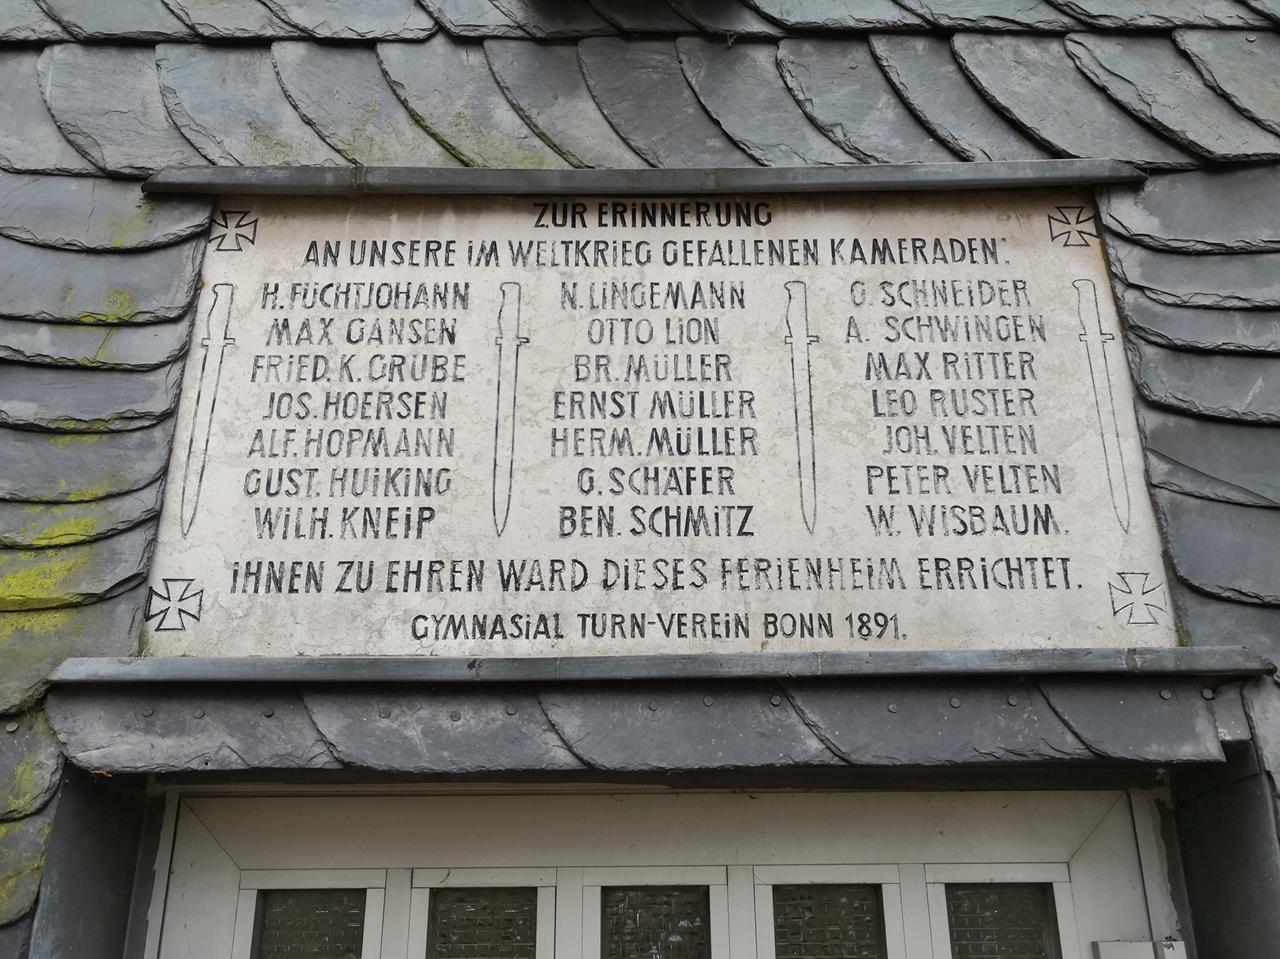 ZUR ERINNERUNG
AN UNSERE IM WELTKRIEG GEFALLENEN KAMERADEN:
H. FÜCHTJOHANN
MAX GANSEN
FRIED. K. GRUBE
JOS. HOERSEN
ALF. HOPMANN
GUST. HUIKING
WILH. KNEIP
N. LINGEMANN
OTTO LION
BR. MÜLLER
ERNST MÜLLER
HERM. MÜLLER
G. SCHÄFER
BEN. SCHMITZ
G. SCHNEIDER
A. SCHWINGEN
MAX RITTER
LEO RUSTER
JOH. VELTEN
PETER VELTEN
W. WISBAUM.
IHNEN ZU EHREN WARD DIESES FERIENHEIM ERRICHTET.
GYMNASIAL TURN-VEREIN BONN 1891.